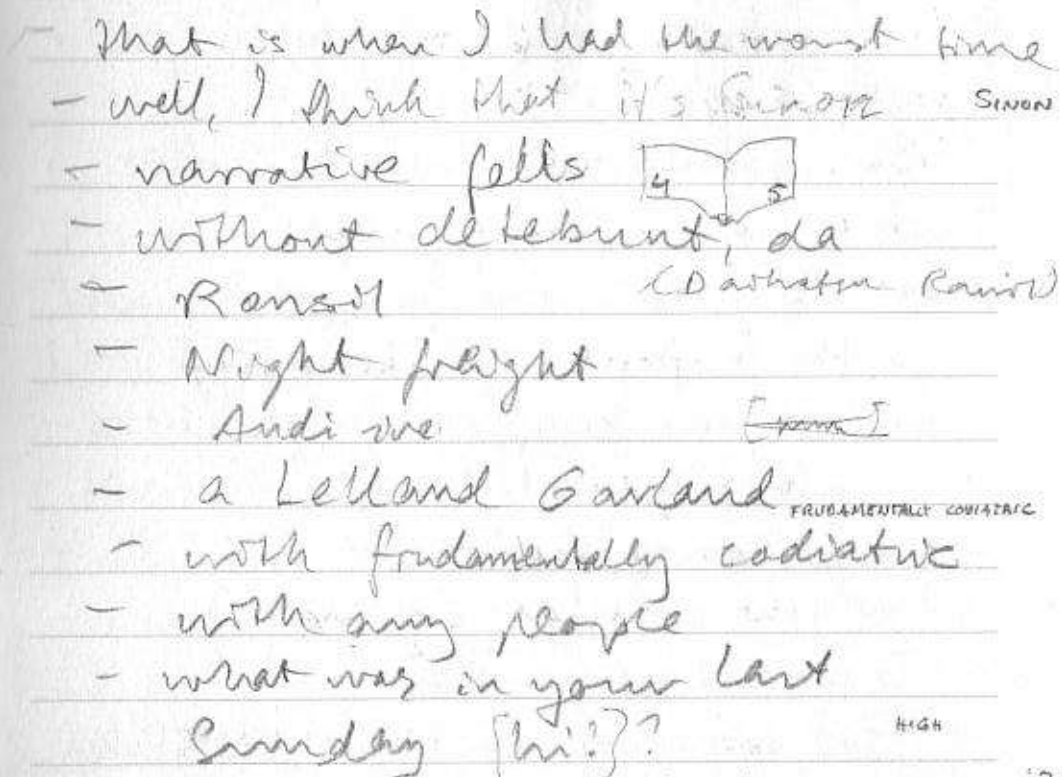 - that is when I had the worst time
- well, I think that it's Sinon SINON
- narrative fells 4 5
- without detebunt, da
- Ransil
- Night freight
- Andi ive
- a Lelland Garland FRUDAMENTALLY CODIATRIC
- with frudamentally codiatric
- with any people
- what was in your last
Sunday [hi!]? HIGH